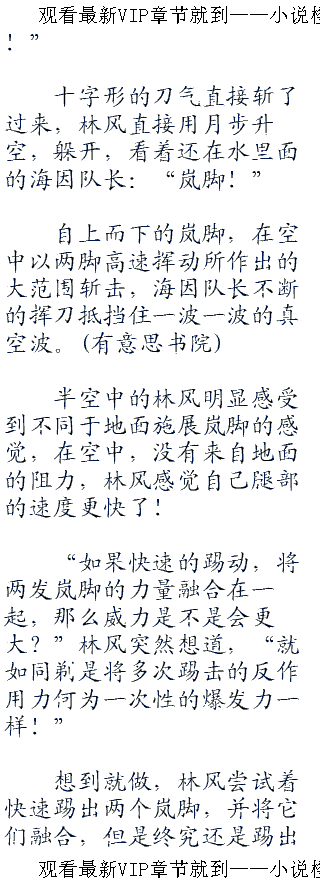 观看最新VIP章节就到——小说
！”
十字形的刀气直接斩了
过来，林风直接用月步升
空，躲开，看着还在水里面
的海因队长：“岚脚！”
自上而下的岚脚，在空
中以两脚高速挥动所作出的
大范围斩击，海因队长不断
的挥刀抵挡住一波一波的真
空波。(有意思书院)
半空中的林风明显感受
到不同于地面施展岚脚的感
觉，在空中，没有来自地面
的阻力，林风感觉自己腿部
的速度更快了！
“如果快速的踢动，将
两发岚脚的力量融合在一
起，那么威力是不是会更
大？”林风突然想道，“就
如同剃是将多次踢击的反作
用力何为一次性的爆发力一
样！”
想到就做，林风尝试着
快速踢出两个岚脚，并将它
们融合，但是终究还是踢出
观看最新VIP章节就到——小说